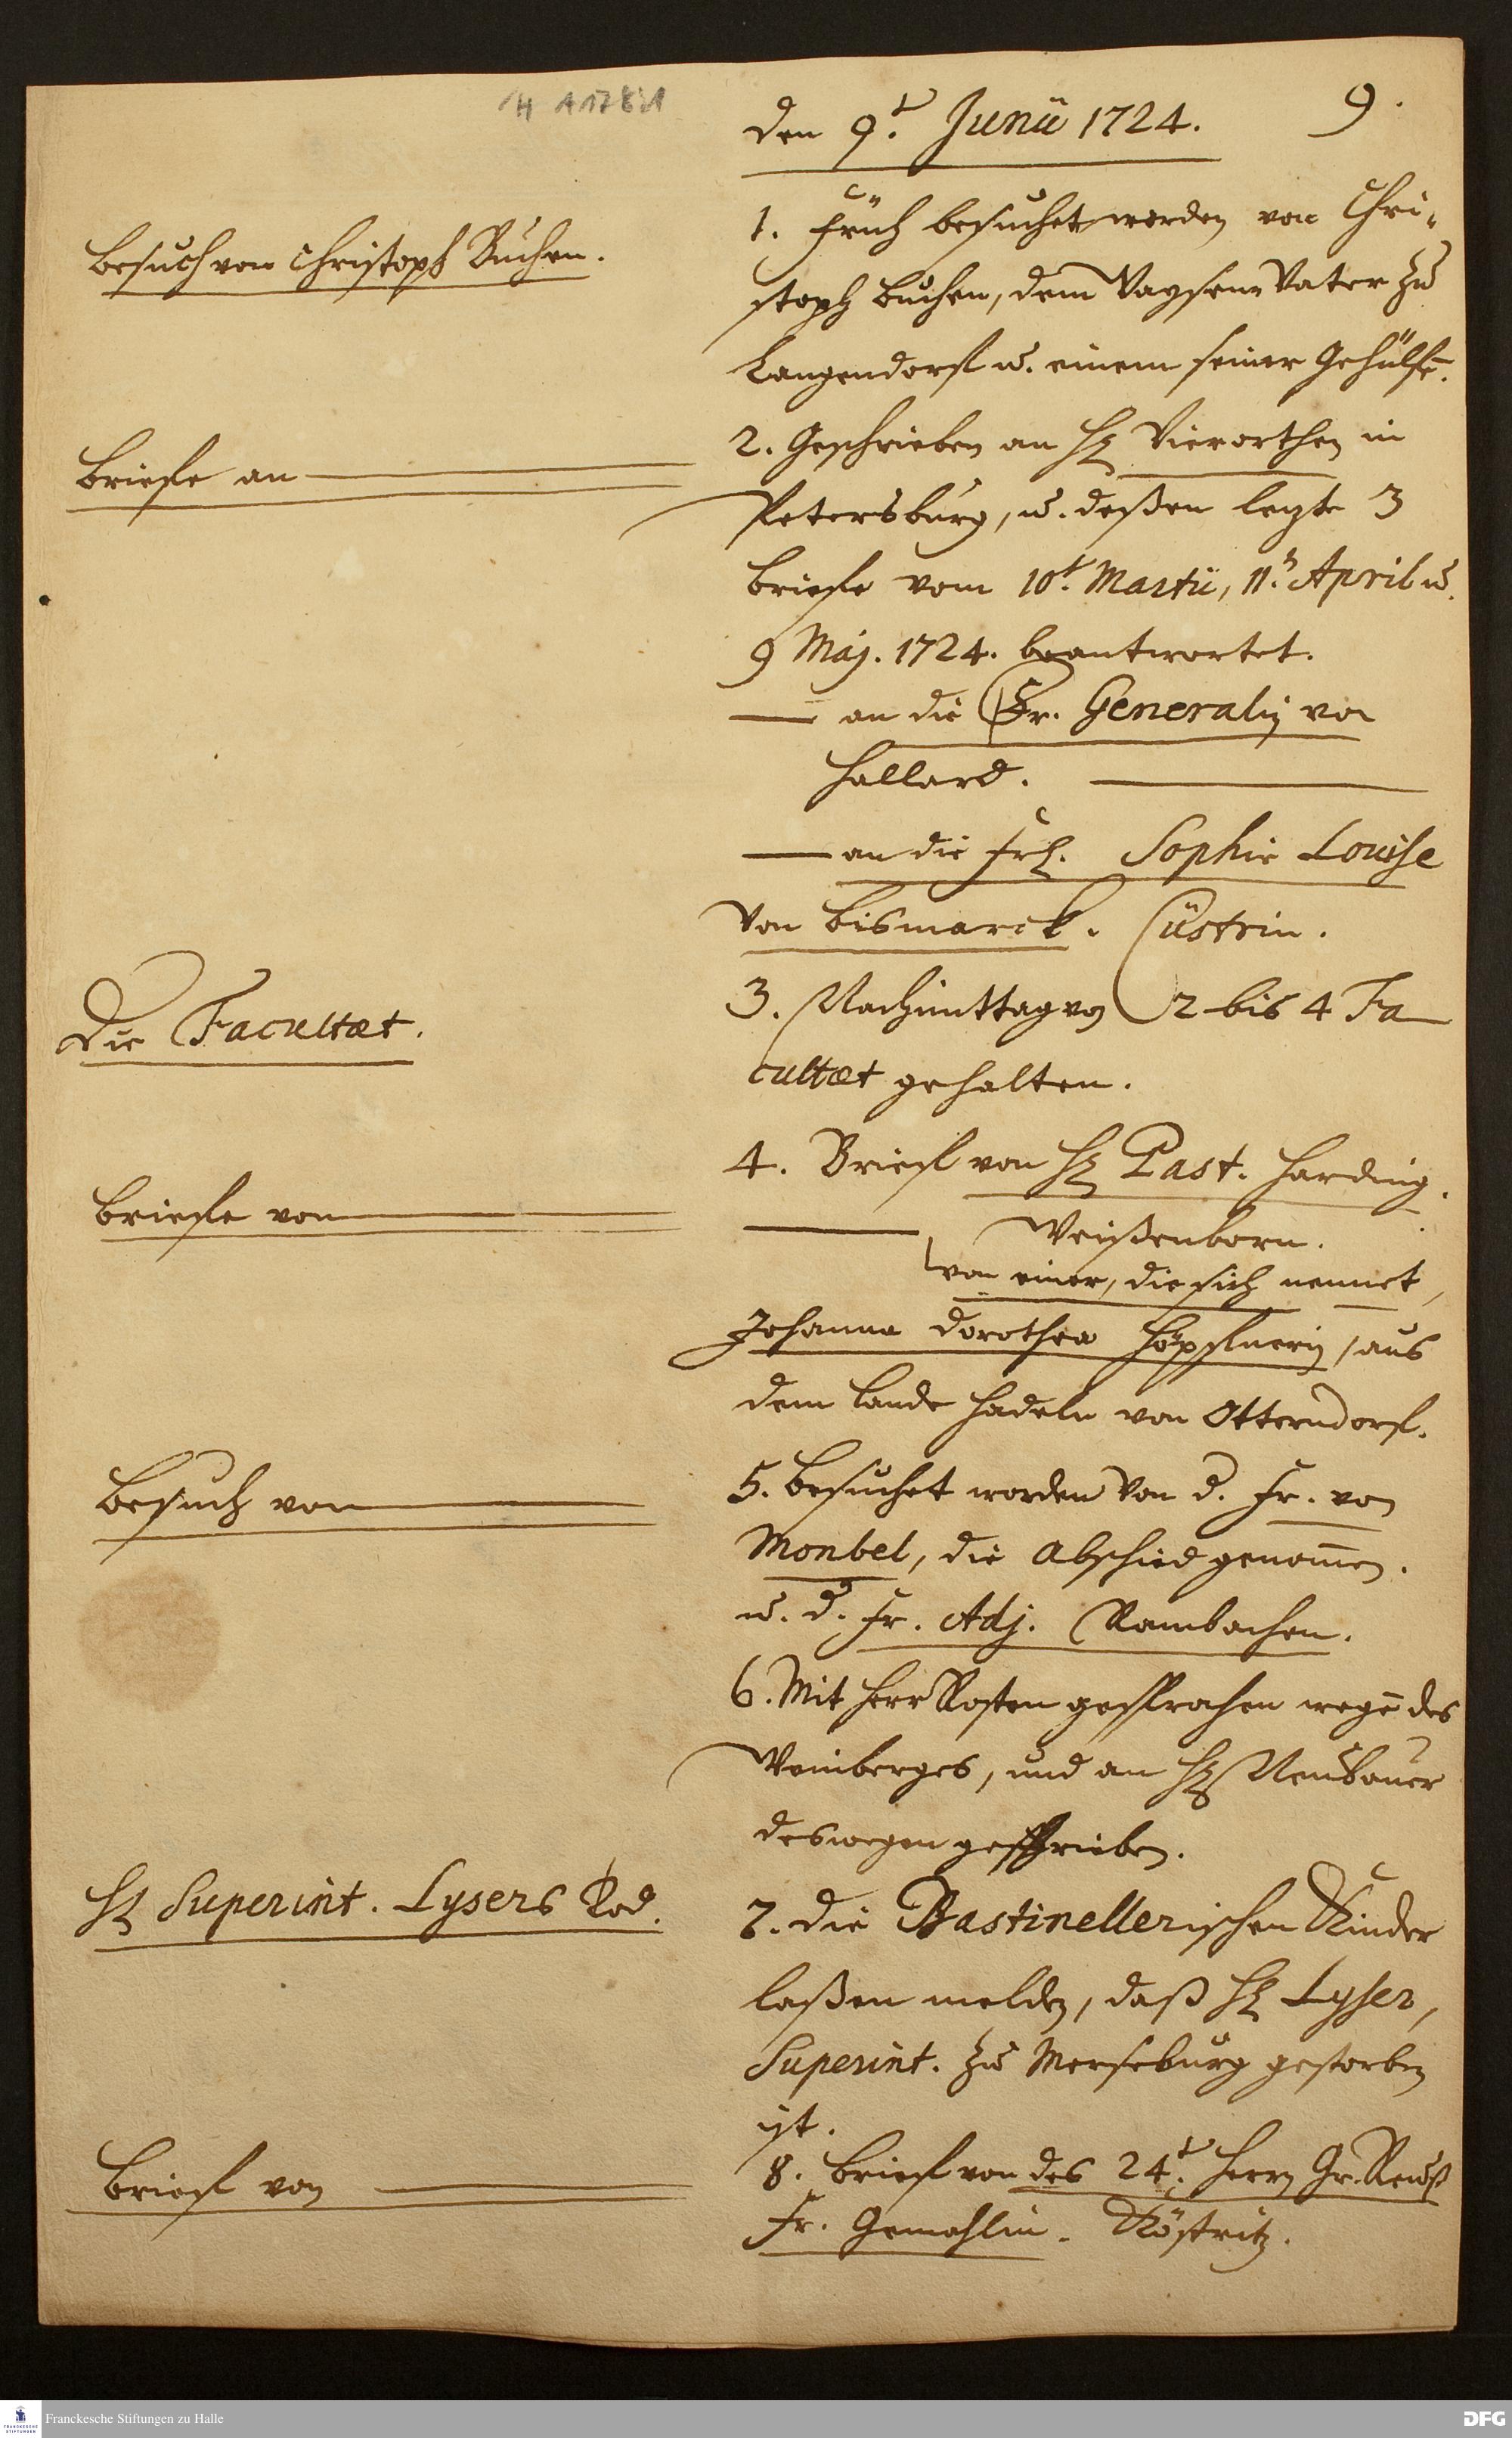 H A 178:1
den 9.t Junii 1724.
9.
Besuch von Christoph Buchen.
1. früh besuchet worden von Chri-
stoph Buchen, dem Waysen-Vater zu
Langendorff u. einem seiner Gehülfē.
Briefe an
2. Geschrieben an H. Vierorthen in
Petersburg, u. deßen lezte 3
Briefe vom 10t. Martii, 11.t April u.
9 Maj. 1724. beantwortet.
— an die Fr. Generalin von
Hallard.
— an die Frl. Sophie Louise
von Bismarck. Cüstrin.
Die Facultæt.
3. Nachmittag von 2 bis 4 Fa
cultæt gehalten.
Briefe von
4. Brief von H. Past. Harding.
Weißenborn.
von einer, die sich nennet,
Johanna Dorothea Höpffnerin, aus
dem Lande Hadeln von Otterndorff.
Besuch von
5. Besuchet worden von d. Fr. von
Monbel, die Abschied genom̄en.
u. d. Fr. Adj. Rambachen.
6. Mit Herr Rosten gesprochen wegē des
Weinberges, und an H. Neubauer
deswegen geschrieben.
H. Superint. Lysers Tod.
7. Die Bastinellerischen Kinder
laßen melden, daß H. Lyser,
Superint. zu Merseburg gestorben
ist.
Brief von
8. Brief von des 24.t Herrn Gr. Reuß
Fr. Gemahlin. Köstritz.
Franckesche Stiftungen zu Halle
FRANCKESCHE STIFTUNGEN
DFG